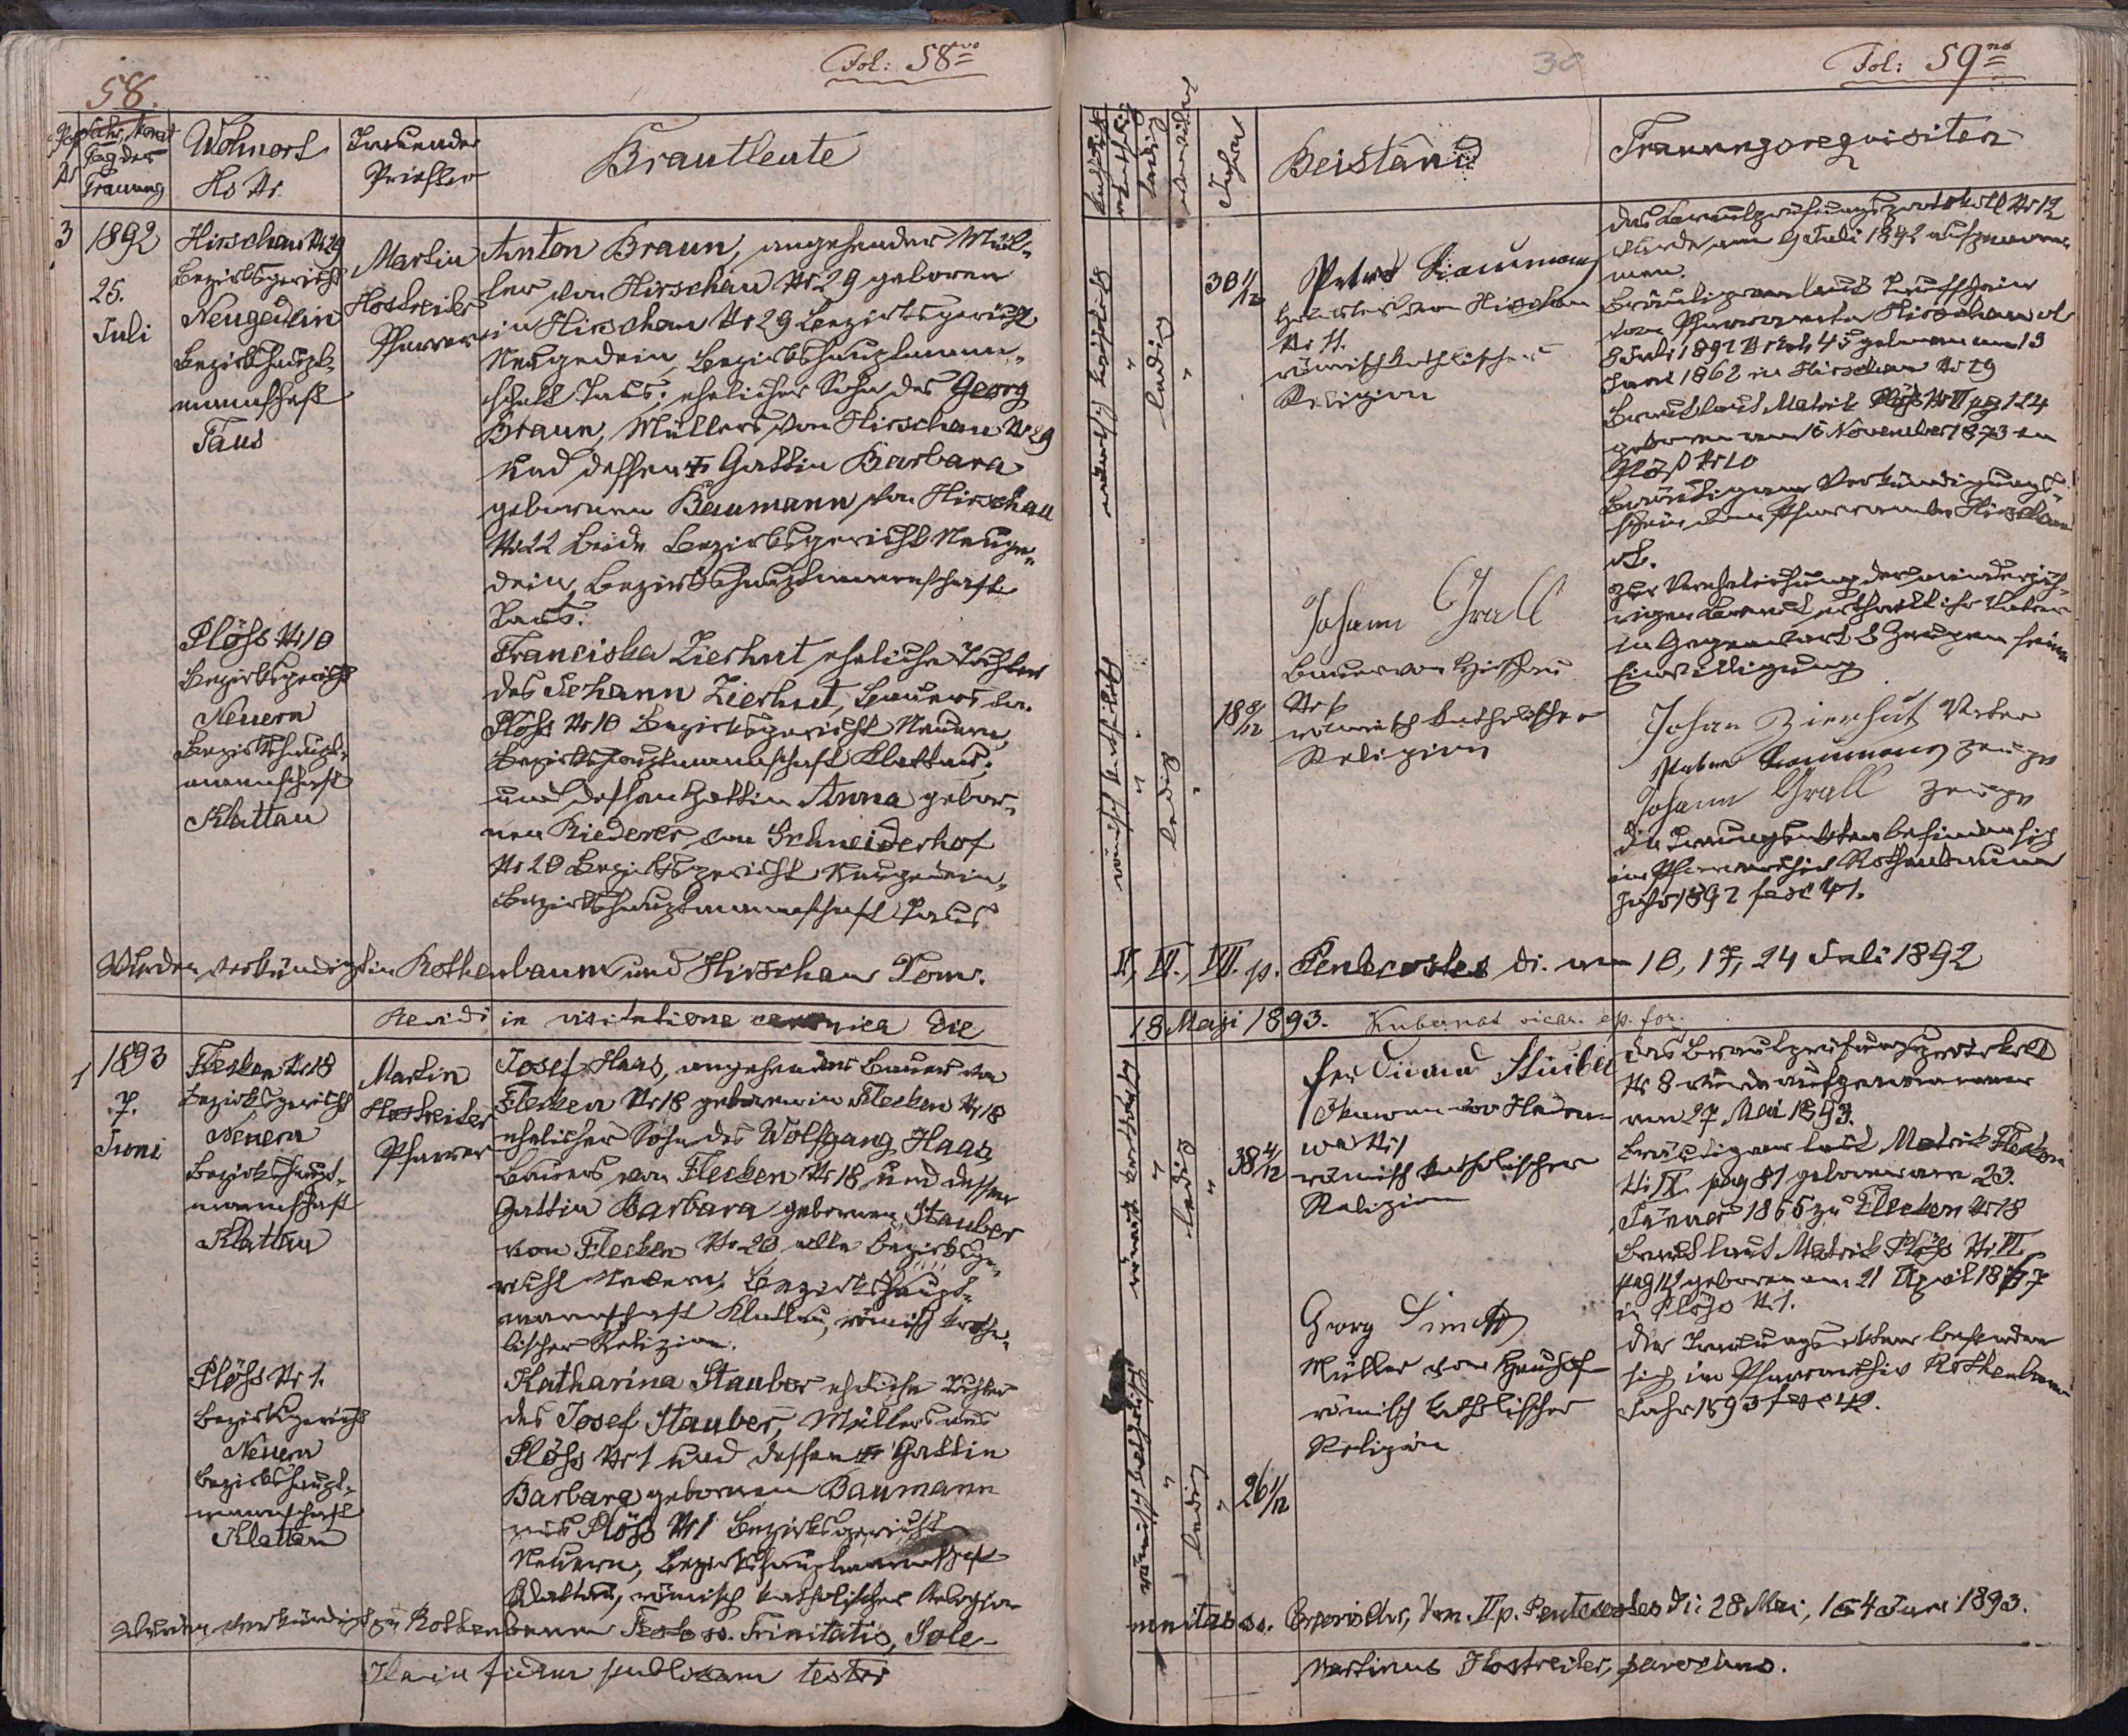 Fol: 58vo
58.
Post Nr
Jahr, Monat
Tag der
Trauung
Wohnort
Hs Nr.
Trauender
Priester
Brautleute
3
1892
25.
Juli
Hirschau Nr 29
Bezirksgericht
Neugedein
Bezirkshaupt-
mannschaft
Taus
Martin
Hostreiter
Pfarrer
Anton Braun, angehender Mül-
ler von Hirschau Nr 29 geboren
in Hirschau Nr 29 Bezirksgericht
Neugedein, Bezirkshauptmann-
schaft Taus; ehelicher Sohn des Georg
Braun, Müllers von Hirschau Nr 29
und dessen Gattin Barbara
gebornen Baumann von Hirschau
Nr 22 beide Bezirksgericht Neuge-
dein, Bezirkshauptmannschaft
Taus.
Plöhs Nr 10
Bezirksgericht
Neuern
Bezirkshaupt-
mannschaft
Klattau
Franciska Zierhut eheliche Tochter
des Johann Zierhut, Bauers in
Plöhs Nr 10 Bezirksgericht Neuern,
Bezirkshauptmannschaft Klattau;
und dessen Gattin Anna gebor-
nen Riederer von Schneiderhof
Nr 20 Bezirksgericht Neugedein,
Bezirkshauptmannschaft Taus
Wurden verkündigt in Rothenbaum und Hirschau Dom.
in visitatione canonica die
1
1893
7.
Juni
Flecken Nr 18
Bezirksgericht
Neuern
Bezirkshaupt-
mannschaft
Klattau
Martin
Hostreiter
Pfarrer
Josef Haas, angehender Bauer von
Flecken Nr 18 geboren in Flecken Nr 18
ehelicher Sohn des Wolfgang Haas
Bauers von Flecken Nr 18 und dessen
Gattin Barbara gebornen Stauber
von Flecken Nr 20 alle Bezirksge-
richt Neuern, Bezirkshaupt-
mannschaft Klattau, römisch katho-
lischer Religion.
Plöhs Nr 1.
Bezirksgericht
Neuern
Bezirkshaupt-
mannschaft
Klattau
Katharina Stauber eheliche Tochter
des Josef Stauber, Müllers aus
Plöhs Nr 1 und dessen Gattin
Barbara gebornen Baumann
aus Plöhs Nr 1 Bezirksgericht
Neuern, Bezirkshauptmannschaft
Klattau, römisch katholischer Religion
Wurden verkündigt zu Rothenbaum Festo ss. Trinitatis, Sole-
Ita in fidem publicam testor
30
Fol: 59no
ledig
Jahre
Beistände
Trauungsrequisiten
römisch katholisch
ledig
30 1/12
Peter Baumann
von Hirschau
römisch katholischer
Religion
Das Brautprüfungsprotokoll Nr 12
wurde am 9 Juli 1892 aufgenom-
men.
Bräutigam laut Taufschein
vom Pfarramte Hirschau
8 Juli 1892 45 geboren am 13
Juni 1862 in Hirschau Nr 29
Braut laut Matrik Plöhs Nr II pag 124
geboren am 15 November 1873 in
Plöß Nr 10
Bräutigam Verkündigungs-
schein vom Pfarramte Hirschau
Zur Verehelichung der minderjäh-
rigen Braut ertheilt ihr Vater
in Gegenwart 2 Zeugen seine
Einwilligung
römisch katholisch
ledig
18 8/12
Johann Grall
Bauer von Hirschau
römisch katholischer
Religion
Johan Zierhut Vater
Peter Baumann Zeuge
Johann Grall Zeuge
Die Trauungsakten befinden sich
im Pfarrarchiv Rothenbaum
Jahr 1892 fasc 41.
V, VI., VII. p. Pentecostes di. am 10, 17, 24 Juli 1892
18 Maji 1893. Kubanat vicar. ep. for.
römisch katholisch
ledig
38 4/12
Ferdinand Stuibel
römisch katholischer
Religion
Das Brautprüfungsprotokoll
Nr 8 wurde aufgenommen
am 27 Mai 1893.
Bräutigam laut Matrik Flecken
pag 81 geboren am 23.
Jänner 1855 zu Flecken Nr 18
Braut laut Matrik Plöhs Nr II
pag 112 geboren am 21 April 1867
in Plöhs Nr 1.
Die Trauungsakten befinden
sich im Pfarrarchiv Rothenbaum
Jahr 1893 fasc 42.
römisch katholisch
ledig
26 1/12
Georg
Müller von
römisch katholischer
Religion
mnitas ss. Corporis Chr., Dom. II p. Pentecostes di: 28 Mai, 1 & 4 Juni 1893.
Martinus Hostreiter, parochus.